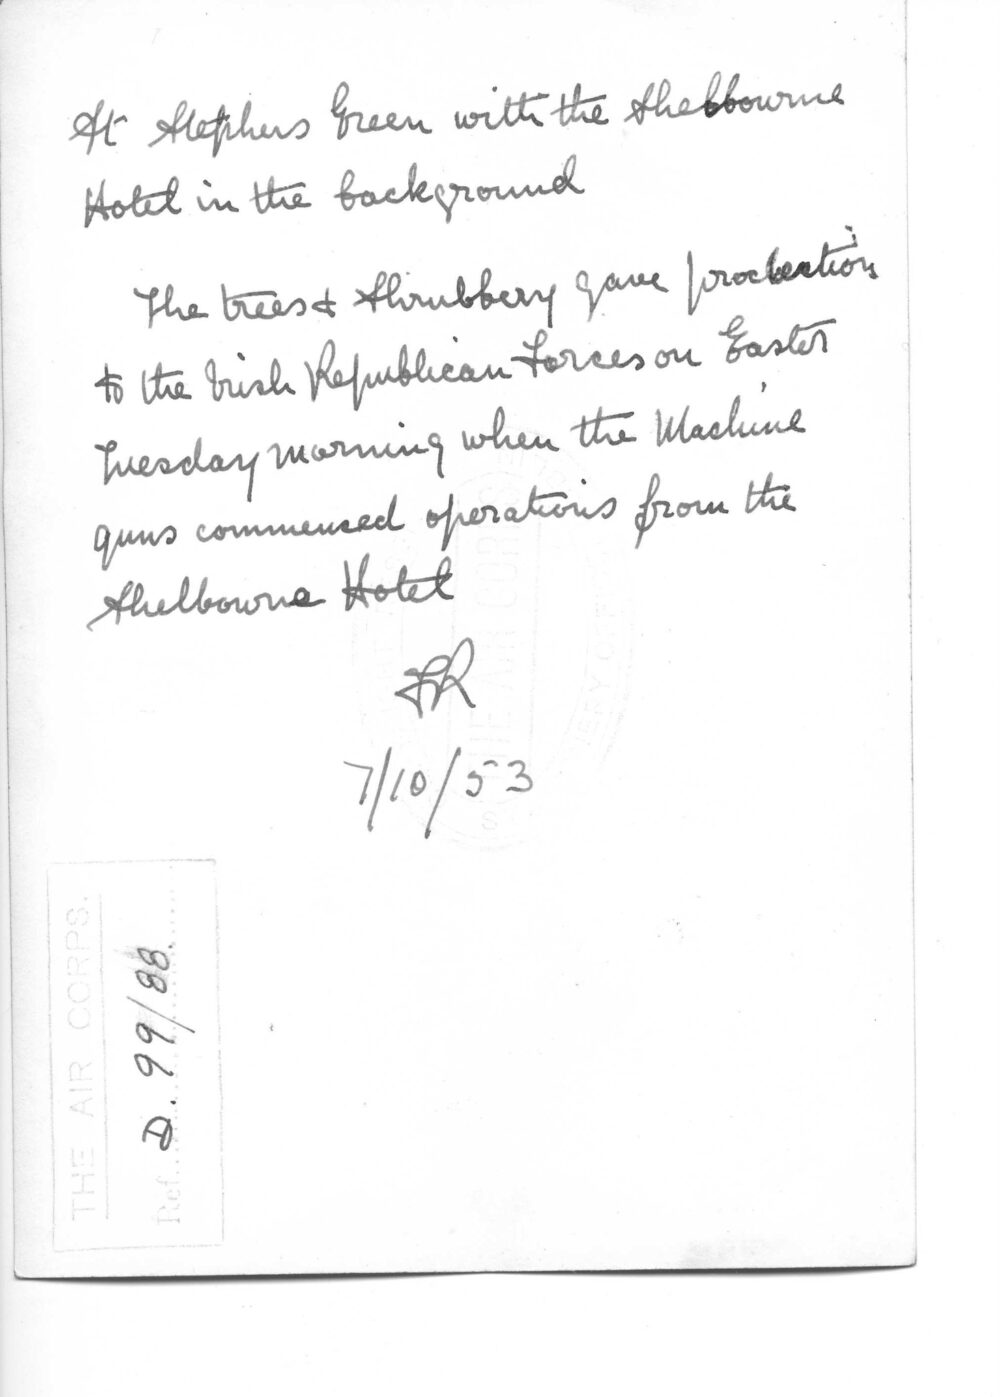 St Stephens Green with the Shelbourne
Hotel in the background
The trees & Shrubbery gave protection
to the Irish Republican Forces on Easter
Tuesday morning when the Machine
guns commenced operations from the
Shelbourne Hotel
FR
7/10/53
THE AIR CORPS.
Ref. D. 99/88.
THE AIR CORPS